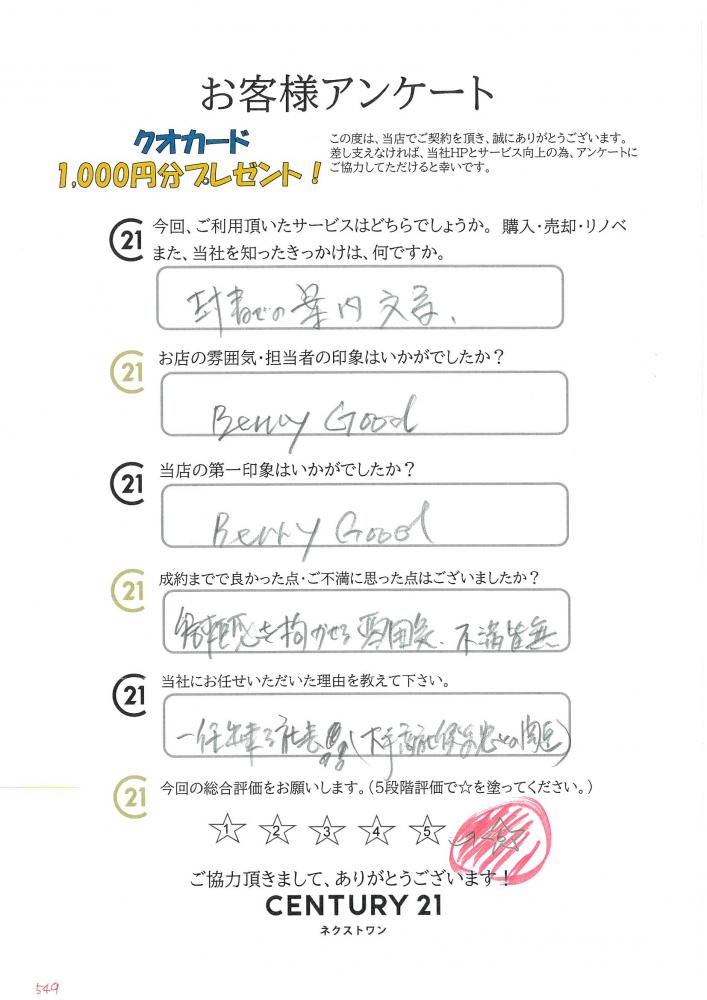 お客様アンケート
クオカード
1,000円分プレゼント!
この度は、当店でご契約を頂き、誠にありがとうございます。
差し支えなければ、当社HPとサービス向上の為、アンケートに
ご協力してただけると幸いです。
21 今回、ご利用頂いたサービスはどちらでしょうか。 購入・売却・リノベ
また、当社を知ったきっかけは、何ですか。
封書での案内文章、
21 お店の雰囲気・担当者の印象はいかがでしたか?
Berry Good
21 当店の第一印象はいかがでしたか?
Berry Good
21 成約までで良かった点・ご不満に思った点はございましたか?
を抱かせる雰囲気、不満皆無
21 当社にお任せいただいた理由を教えて下さい。
一任出来る社長
21 今回の総合評価をお願いします。(5段階評価で☆を塗ってください。)
1 2 3 4 5 6
ご協力頂きまして、ありがとうございます!
CENTURY 21
ネクストワン
549